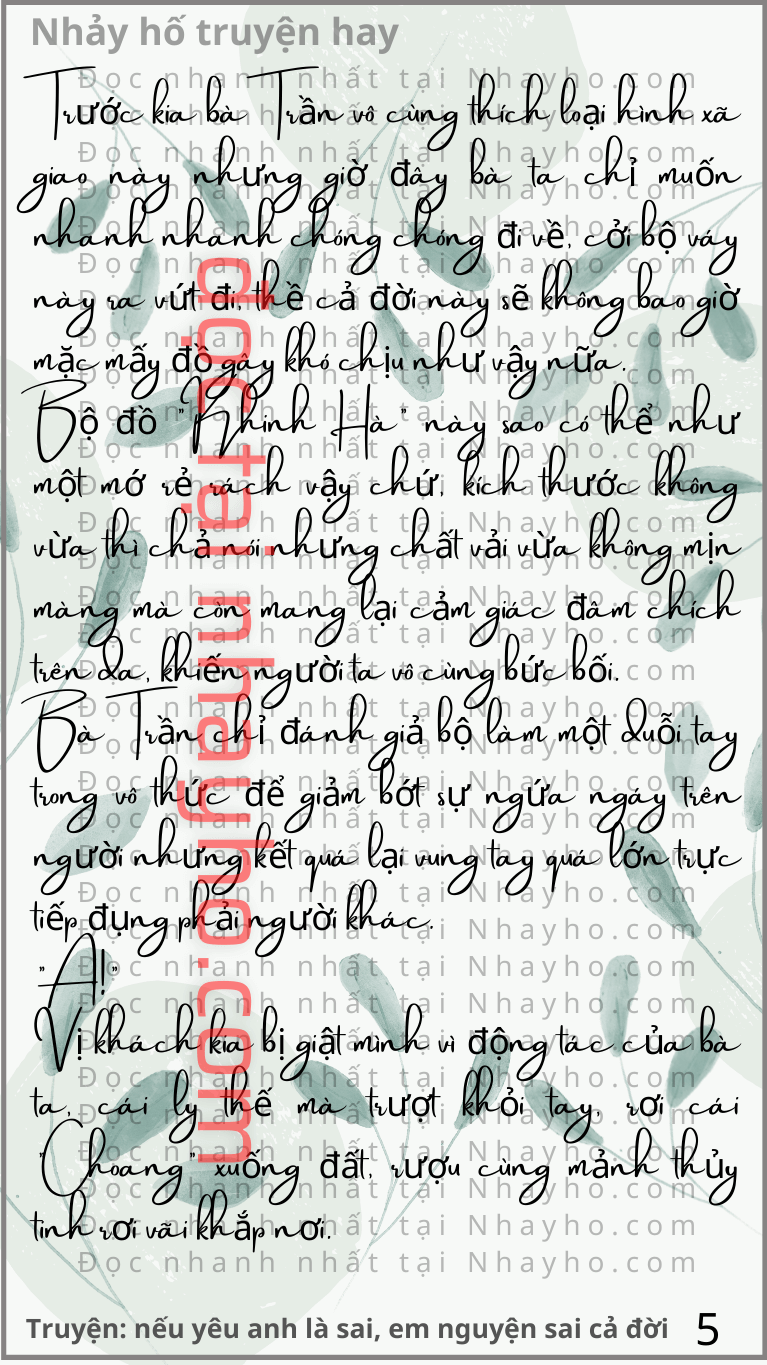 Nhảy hố truyện hay
Trước kia bà Trần vô cùng thích loại hình xã
giao này nhưng giờ đây bà ta chỉ muốn
nhanh nhanh chóng chóng đi về, cởi bộ váy
này ra vứt đi, thề cả đời này sẽ không bao giờ
mặc mấy đồ gây khó chịu như vậy nữa.
Bộ đồ "Nhinh Hà" này sao có thể như
một mớ rẻ rách vậy chứ, kích thước không
vừa thì chả nói nhưng chất vải vừa không mịn
màng mà còn mang lại cảm giác đâm chích
trên da, khiến người ta vô cùng bức bối.
Bà Trần chỉ đánh giả bộ làm một duỗi tay
trong vô thức để giảm bớt sự ngứa ngáy trên
người nhưng kết quả lại vung tay quá lớn trực
tiếp đụng phải người khác.
"A!"
Vị khách kia bị giật mình vì động tác của bà
ta, cái ly thế mà trượt khỏi tay, rơi cái
"Choang" xuống đất, rượu cùng mảnh thủy
tinh rơi vãi khắp nơi.
đọc tại nhayho.com
Đọc nhanh nhất tại Nhayho.com
Truyện: nếu yêu anh là sai, em nguyện sai cả đời
5